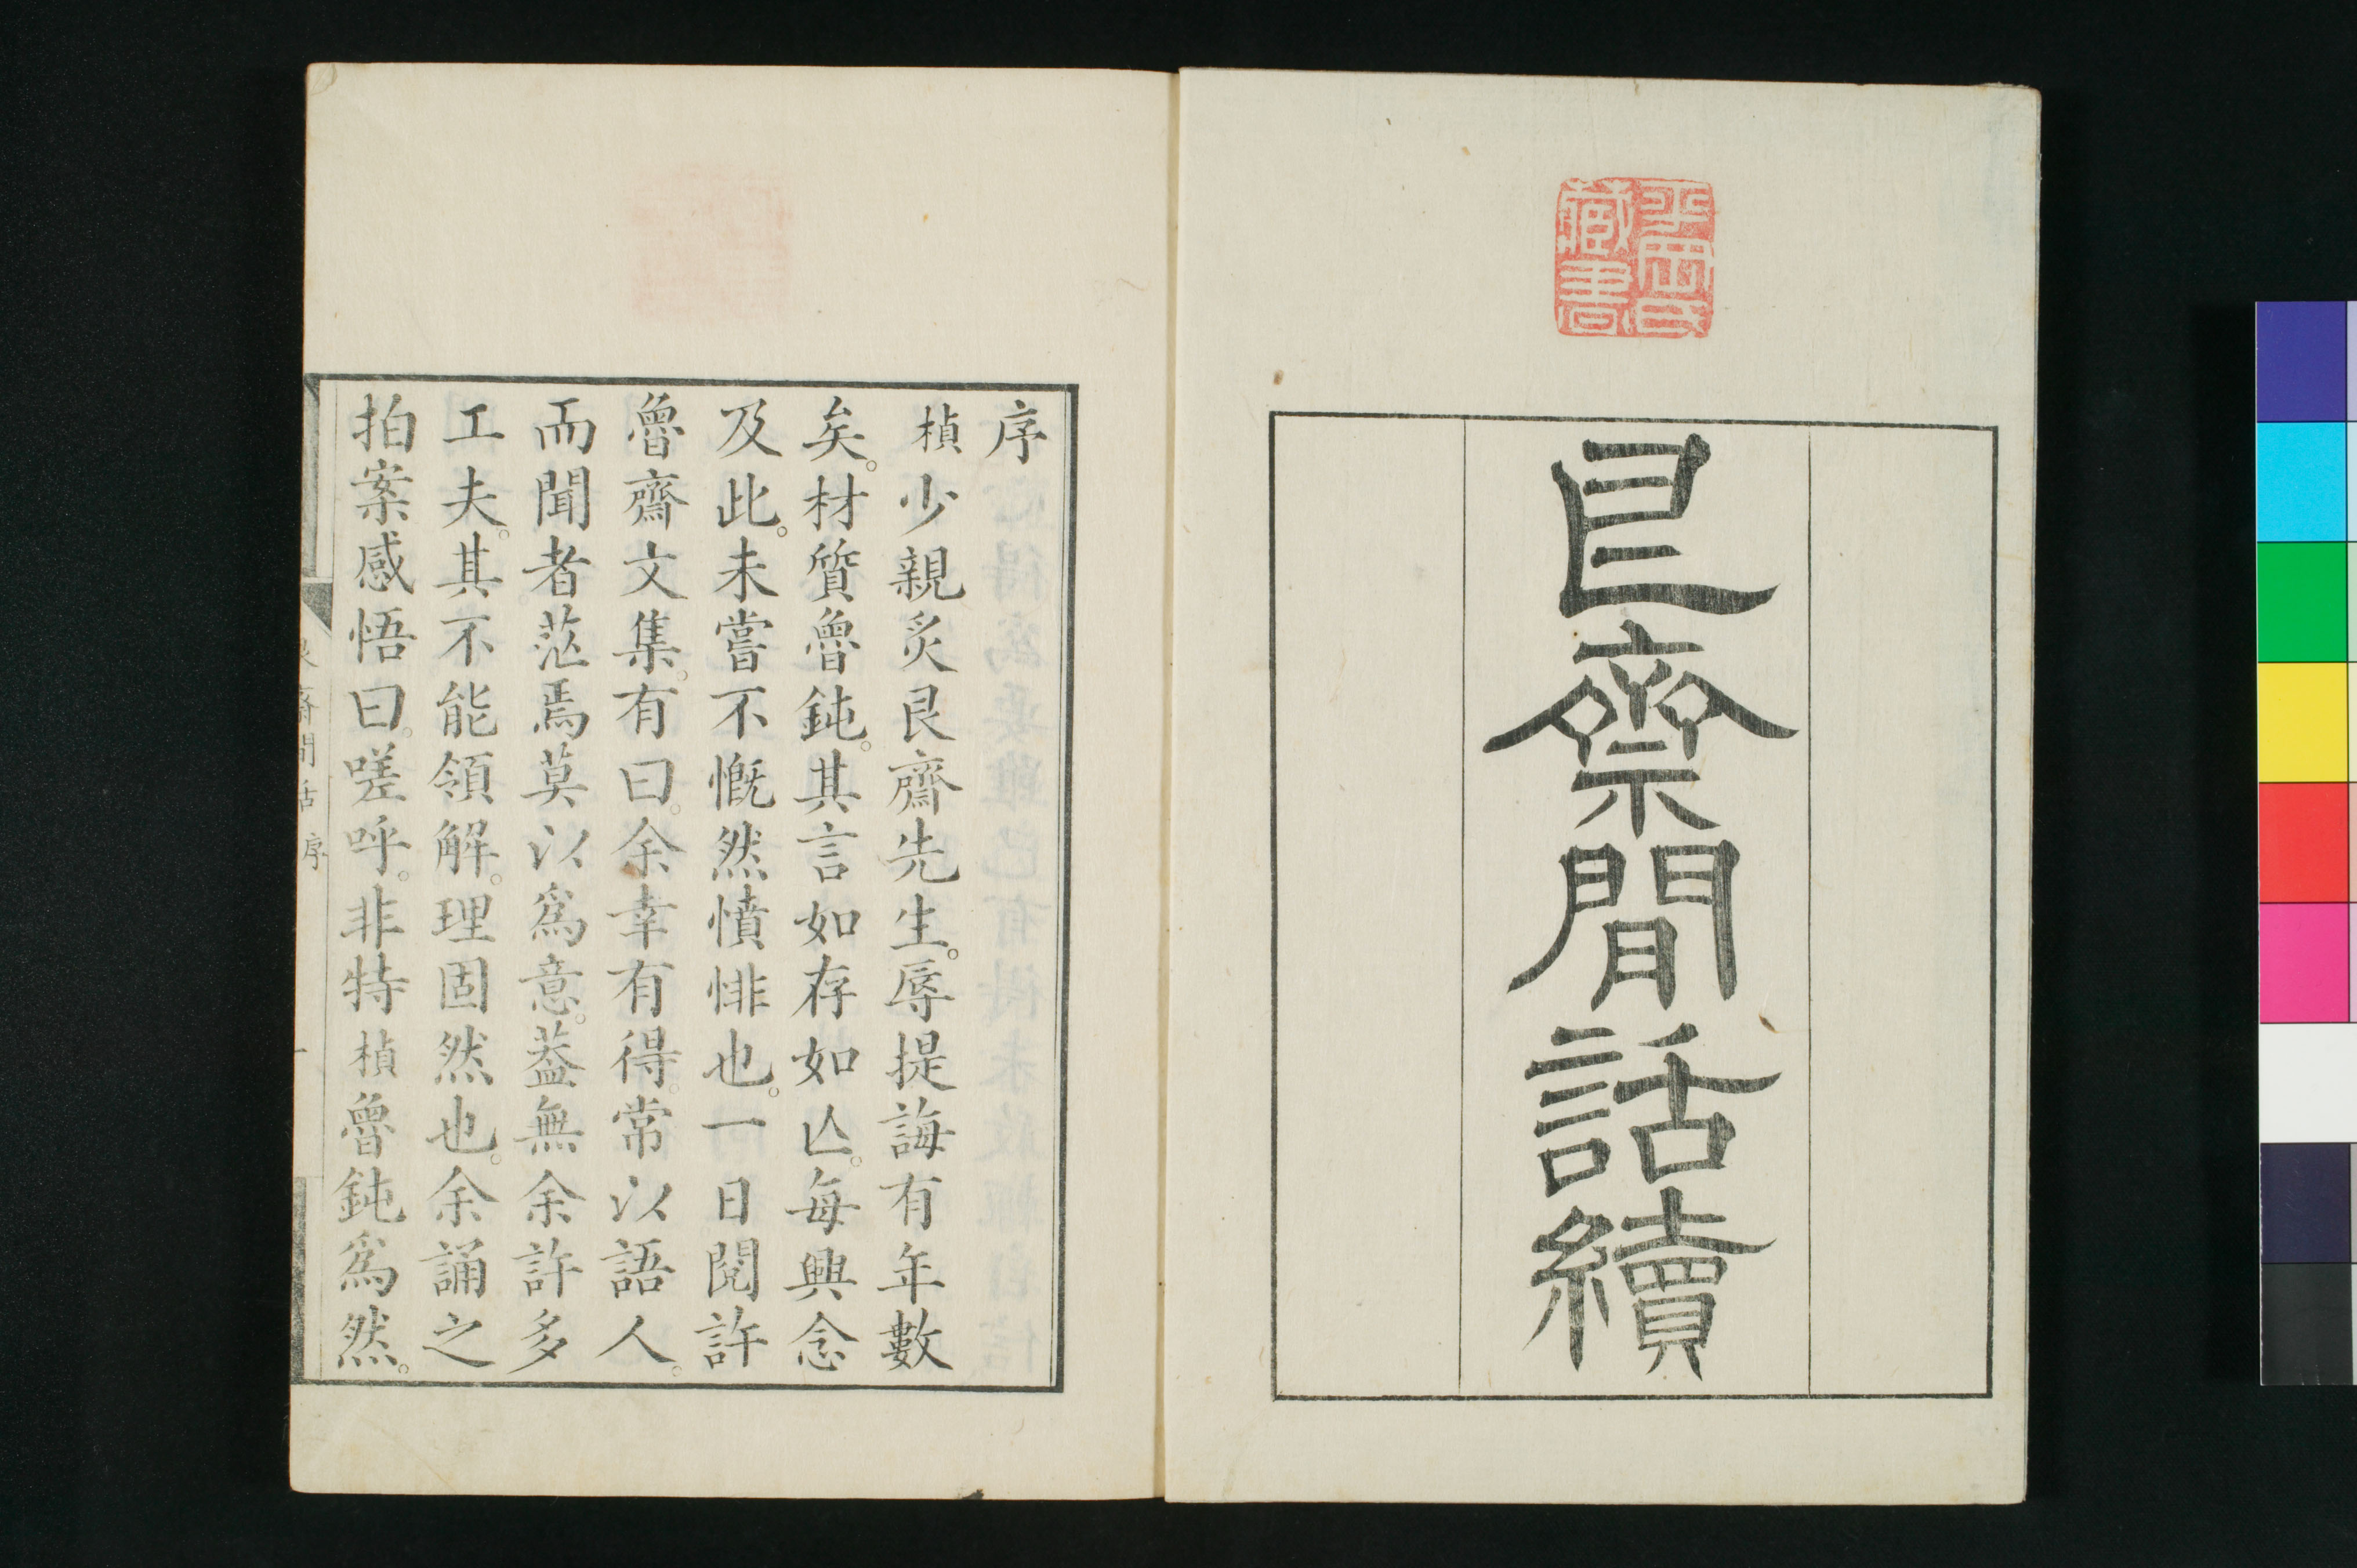 艮齋閒話續
序
楨少親炙艮齋先生。辱提誨有年數
矣。材質魯鈍。其言如存如亾。每興念
及此。未嘗不慨然憤悱也。一日閱許
魯齋文集。有曰。余幸有得。常以語人。
而聞者茫焉莫以爲意。葢無余許多
工夫。其不能領解。理固然也。余誦之
拍案感悟曰。嗟呼。非特楨魯鈍爲然。
藏書